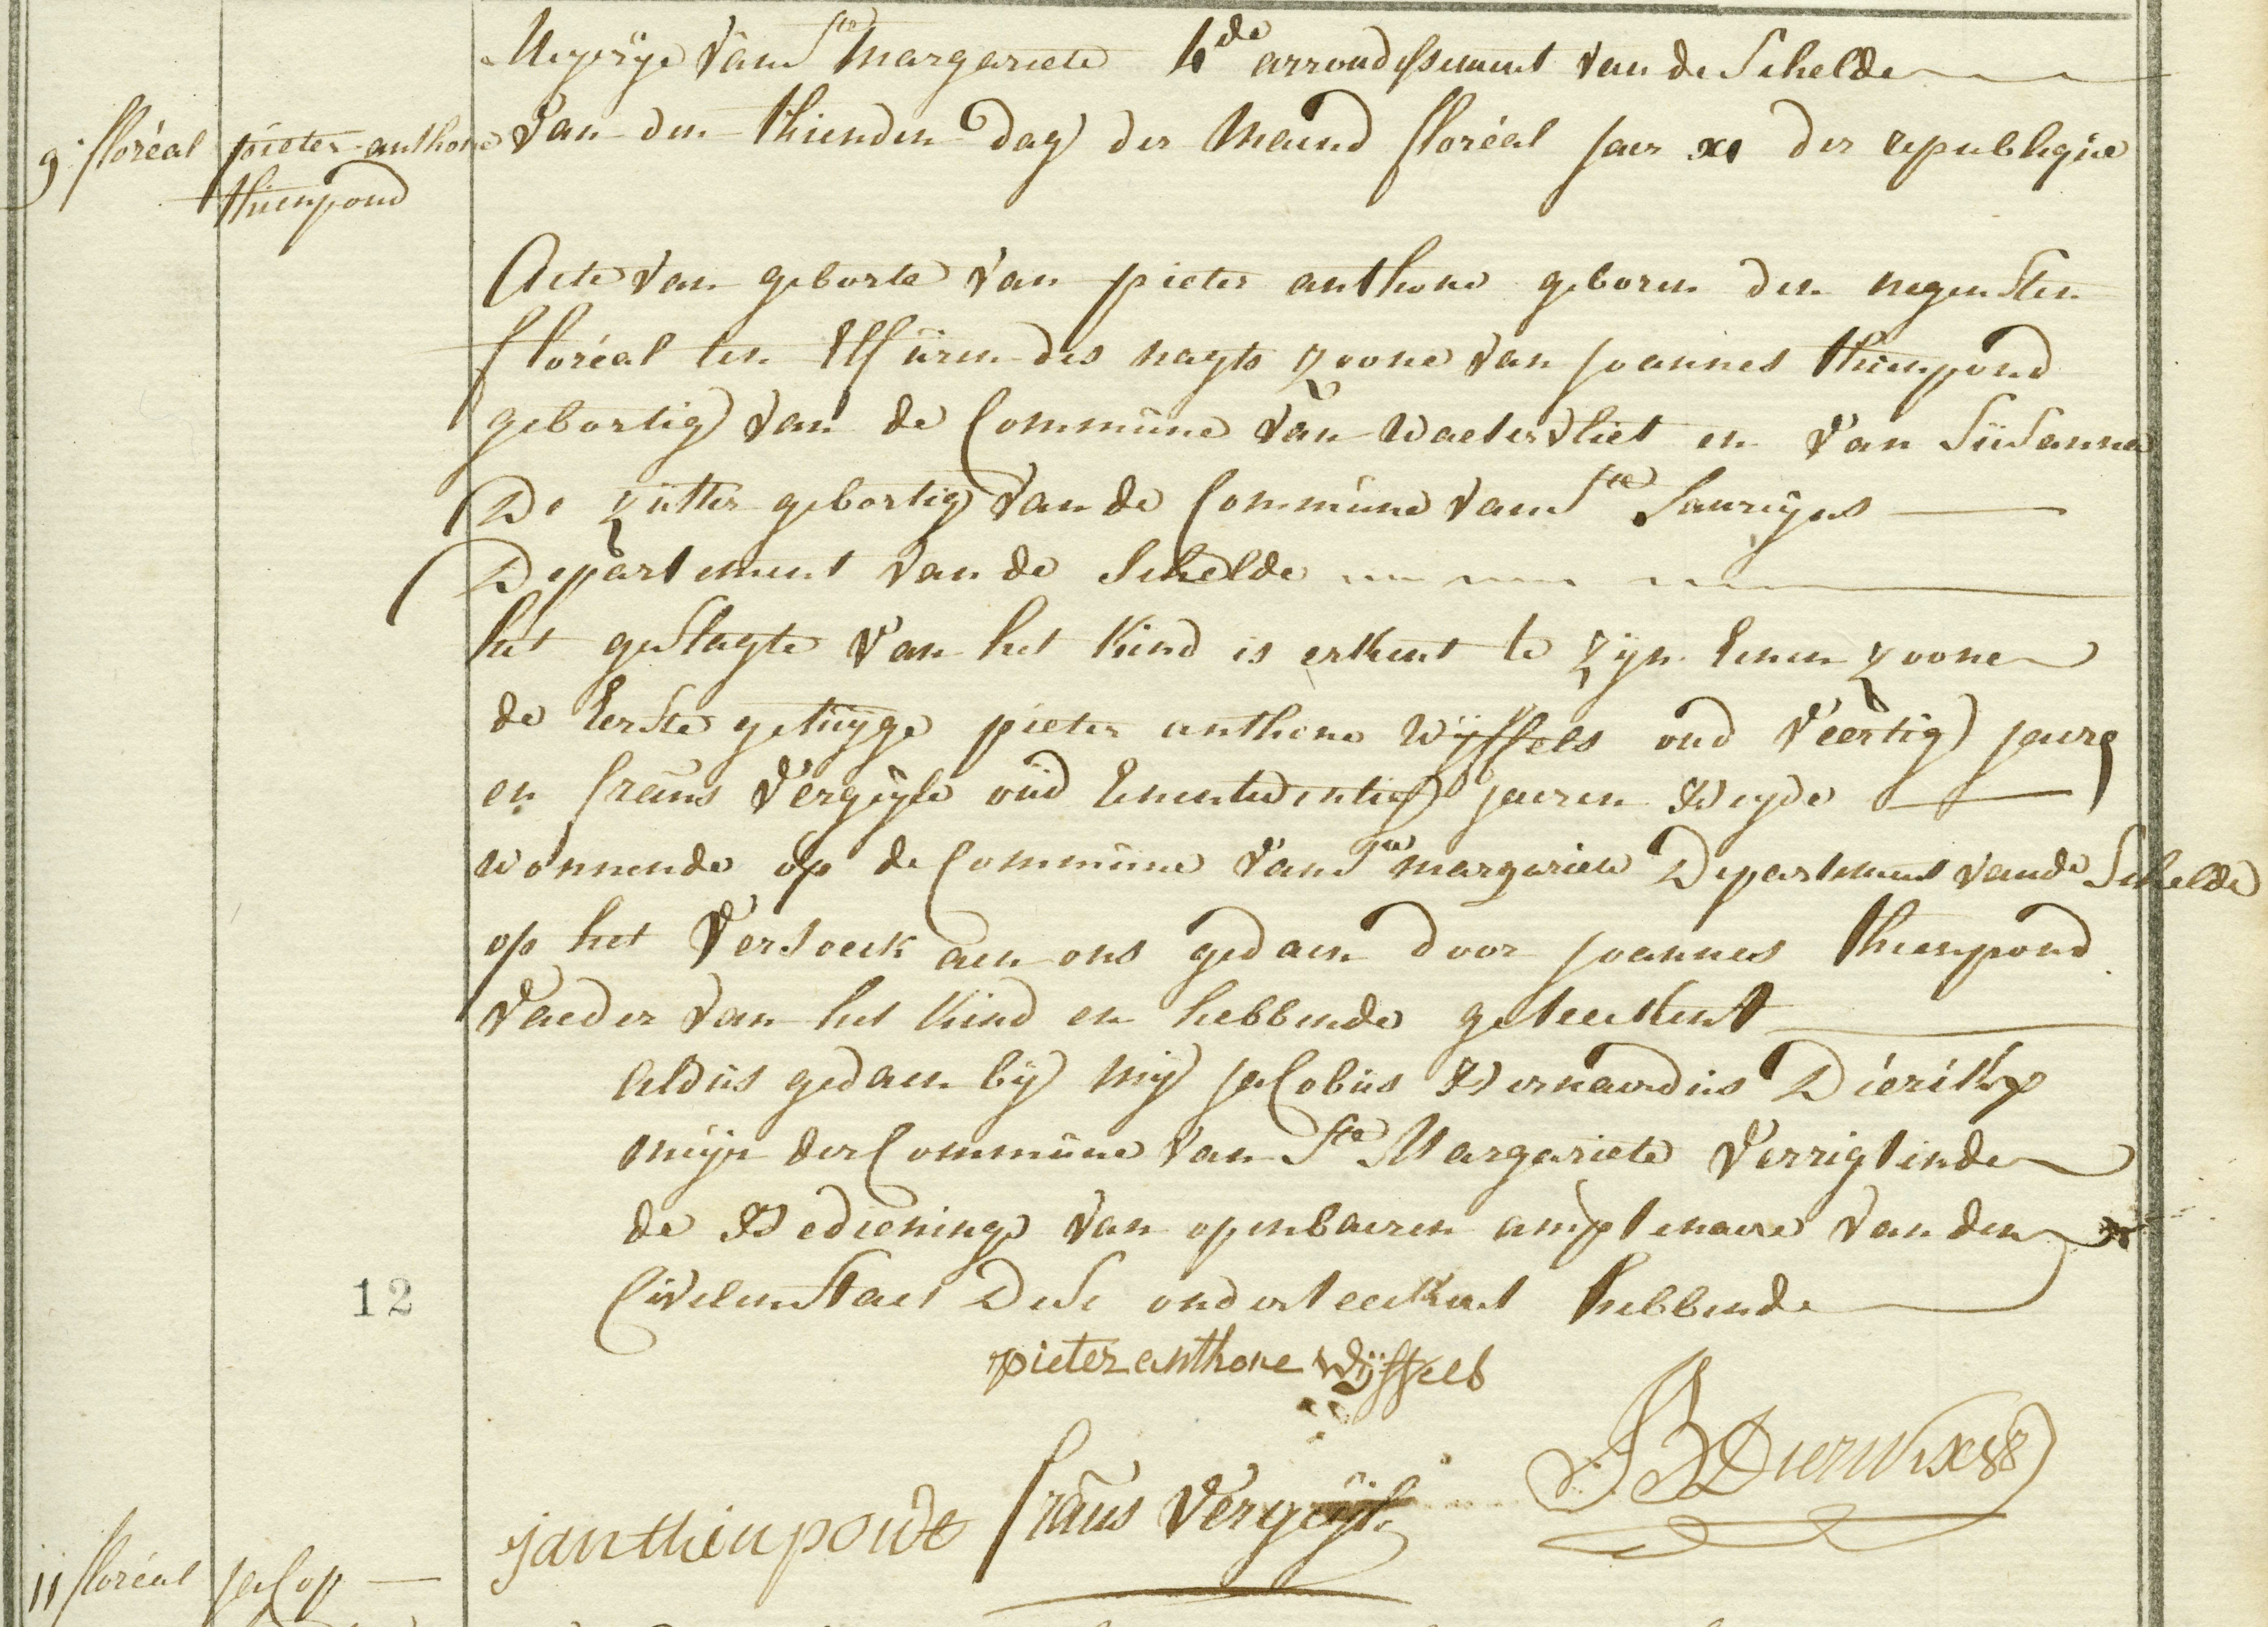 Meyerije van Ste Margariete 4de arrondissement van de Schelde
9e floréal pieter anthone van den thienden dag der maend floréal jaer xi der republique
thienpond
Acte van geborte van pieter anthone geboren den negensten
floréal ten Elf uren des nagts zoone van joannes thienpond
gebortig van de Commune van Watervliet en van Susanna
De Zutter gebortig van de Commune van Ste Laureijns
Departement van de Schelde
het geslagte van het kind is erkent te zijn Eenen zoone
de Eerste getuijge pieter anthone Wijffels oud veertig jaere
en fraũs Vergijle oud Eenentwintig jaeren Beyde
wonnende op de Commune van Ste margariete Departement van de Schelde
op het Versoeck aen ons gedaen door joannes thienpond
Vaeder van het kind en hebbende geteekent
Aldus gedaen bij mij jacobus Bernaerdus Dierikx
meijer der Commune van Ste Margariete Verrigtende
de Bedieninge van openbaeren amptenaere van den
Civilen Staet Dese onderteekent hebbende
12
pieter anthone Wijffels
JB Dierikx
jan thienpondt fraũs Vergijle
11 floréal jacop